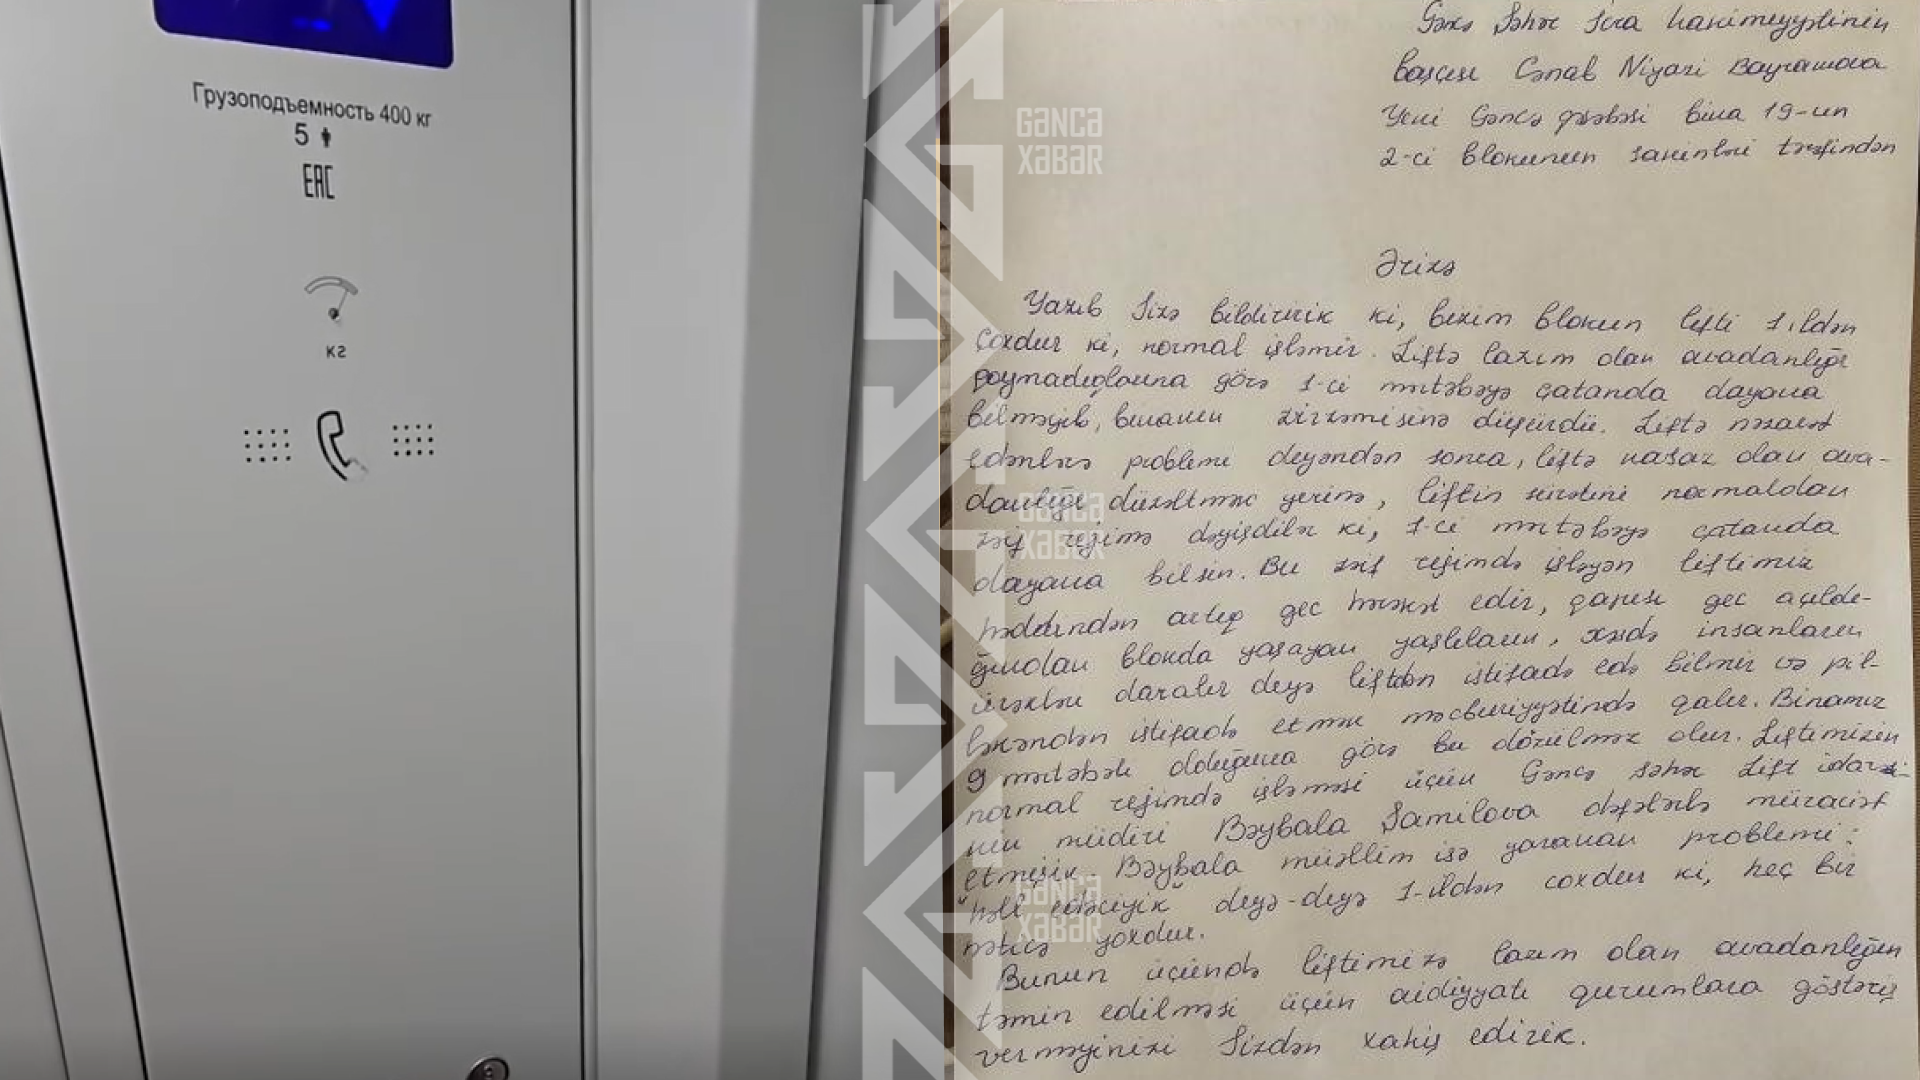 Грузоподъемность 400 кг
5
EAC
кг
GƏNCƏ
XƏBƏR
Gəncə Şəhər İcra hakimiyyətinin
başçısı Cənab Niyazi Bayramova
Yeni Gəncə qəsəbəsi bina 19-un
2-ci blokunun sakinləri tərəfindən
Ərizə
Yazıb Sizə bildiririk ki, bizim blokun lifti 1 ildən
çoxdur ki, normal işləmir. Liftə lazım olan avadanlığı
qoymadıqlarına görə 1-ci mərtəbəyə çatanda dayana
bilməyib, binanın zirzəmisinə düşürdü. Liftə nəzarət
edənlərə problemi deyəndən sonra, liftə nasaz olan ava-
danlığı düzəltmək yerinə, liftin sürətini normaldan
zəif rejimə dəyişdilər ki, 1-ci mərtəbəyə çatanda
dayana bilsin. Bu zəif rejimdə işləyən liftimiz
həddindən artıq gec hərəkət edir, qapısı gec açıldı-
ğından blokda yaşayan yaşlıların, xəstə insanların
ürəkləri daralır deyə liftdən istifadə edə bilmir və pil-
ləkəndən istifadə etmək məcburiyyətində qalır. Binamız
9 mərtəbəli olduğuna görə bu dözülməz olur. Liftimizin
normal rejimdə işləməsi üçün Gəncə şəhər Lift idarəsi-
nin müdiri Bəybala Şamilova dəfələrlə müraciət
etmişik. Bəybala müəllim isə yaranan problemi:
"həll edəcəyik" deyə-deyə 1-ildən coxdur ki, heç bir
nəticə yoxdur.
Bunun üçündə liftimizə lazım olan avadanlığın
təmin edilməsi üçün aidiyyatı qurumlara göstəriş
verməyinizi Sizdən xahiş edirik.
GƏNCƏ
XƏBƏR
GƏNCƏ
XƏBƏR